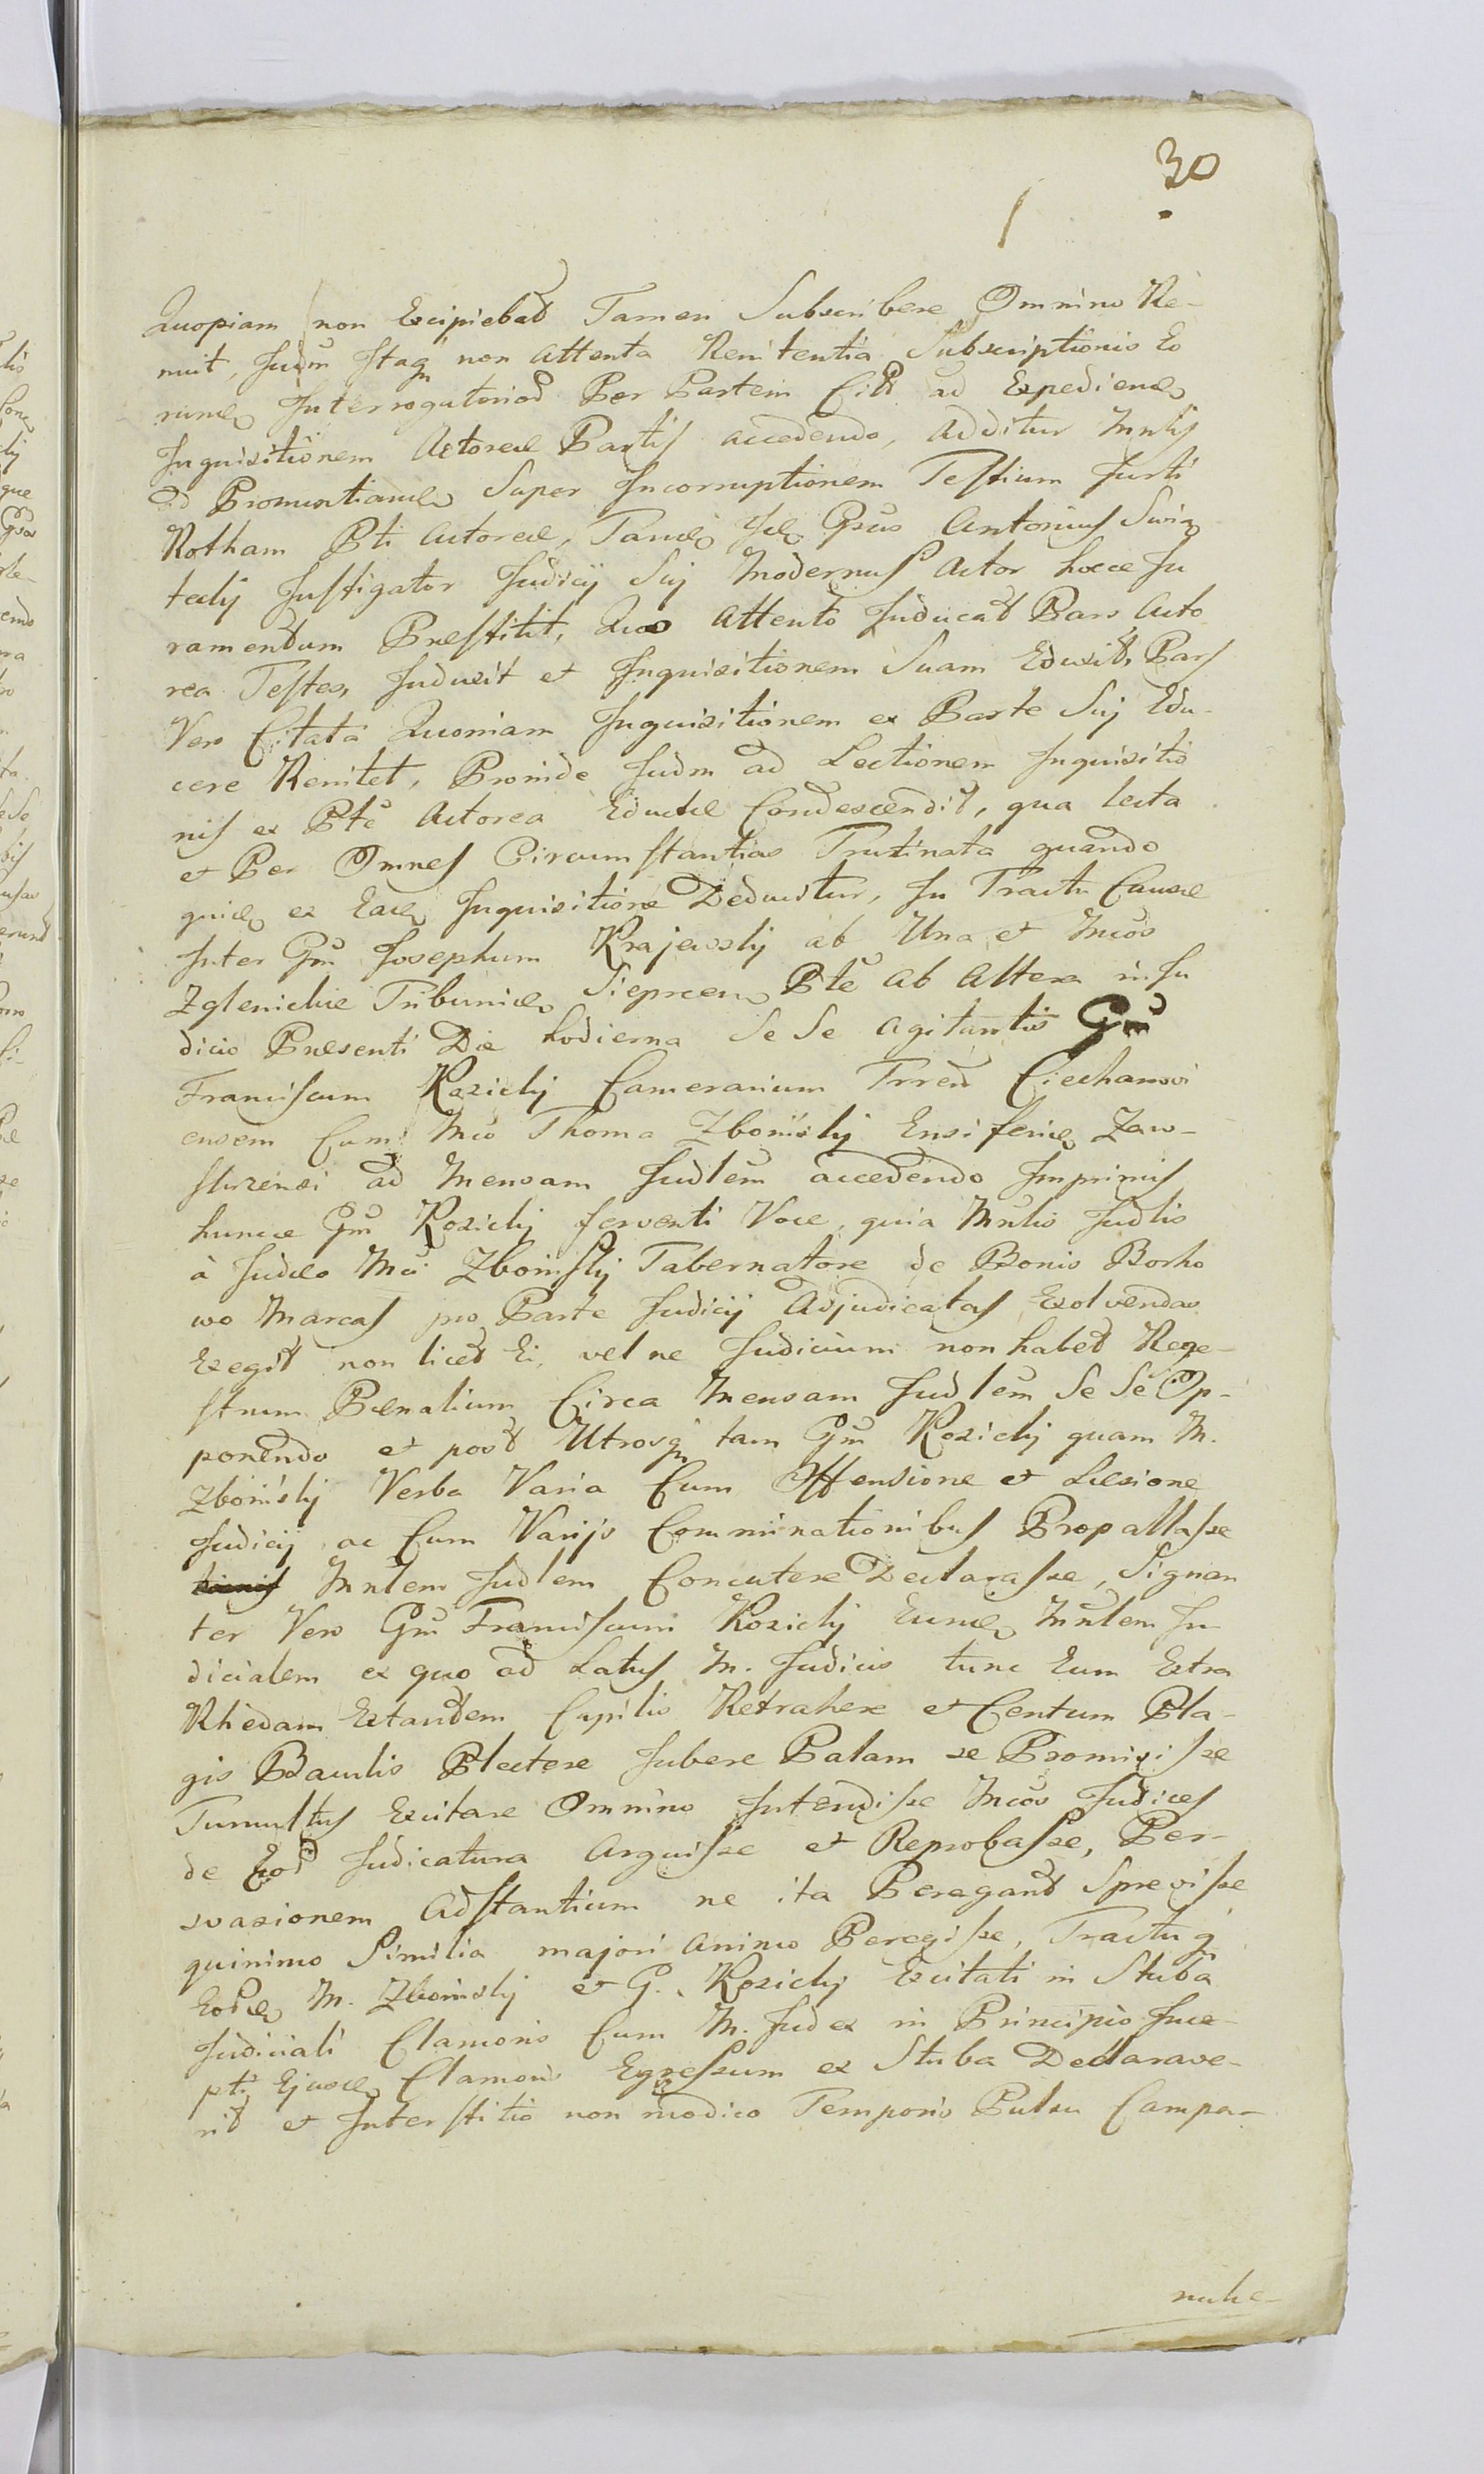 30
Quopiam non Excipiebat Tamen Subscribere Omnino Re-
nuit, Judm Itaq non Attenta Renitentia Subscriptionis Eo
rund Interrogatoriod Per Partem Citt ad Expediend
Inquisitionem Actoreæ Partis accedendo, Additur Mnlis
ad Pronuntiand Super Incorruptionem Testium Jurti
Rotham Pti Actoreæ, Tand Gsus Antonius Swię
tecky Instigator Judicij Sui Modernus Actor hocce Ju
ramentum Præstitit, Quo Attento Inducat Pars Acto
rea Testes, Induxit et Inquisitionem Suam Eduxit, Pars
Vero Citata Quoniam Inquisitionem ex Parte Sui Edu-
cere Renitet, Proinde Judm ad Lectionem Inquisitio
nis ex Pte Actorea Eductæ Condescendit, qua lecta
et Per Omnes Circumstantias Trutinata quando
quid ex Ead Inquisitione Deducitur, In Tractu Causæ
Inter Gm Josephum Krajewsky ab Una et Mcos
Zglenickie Tribunid Sieprcen Pte ab Altera in Ju
dicio Præsenti Die hodierna Se Se agitantis Gm
Franciscum Kozicky Camerarium Trred Ciechanovi
ensem Cum Mco Thoma Zboinsky Ensiferid Zaw-
skrzensi ad Mensam Judlem accedendo Imprimis
huncce Gm Kozicky ferventi Voce, quia Mnlis Judlis
à Judæo Mci Zboinsky Tabernatore de Bonis Borko
wo Marcas pro Parte Judicij Adjudicatas Exolvendas
Exegit non licet Ei, vel ne Judicium non habet Rege-
strum Pænalium Circa Mensam Judlem Se Se Op-
ponendo et post Utrosq tam Gm Kozicky quam M.
Zboinsky Verba Varia Cum Offensione et Læsione
Judicij ac Cum Varijs Comminationibus Propallasse
Mnlem Judlem Concutere Declarasse, Signan
ter Vero Gm Franciscum Kozicky Eund Mnlem Ju-
dicialem ex quo ad Latus M. Judicis tunc Eum Extra
Rhedam Extantem Capilis Retrahere et Centum Pla-
gis Baculis Plectere Jubere Palam se Promisisse
Tumultus Excitare Omnino Intendisse Mcos Judices
de Eod Judicatura Arguisse et Reprobasse, Per-
svasionem Adstantium ne ita Peragant Sprevisse
quinimo Similia majori Animo Peregisse, Tractu q
Eod M. Zboinsky et G. Kozicky Excitati in Stuba
Judiciali Clamoris Cum M. Judex in Principio Ince-
pti Ejusd Clamoris Egressum ex Stuba Declarave-
rit et Interstitio non modico Temporis Pulsu Campa-
nulæ-